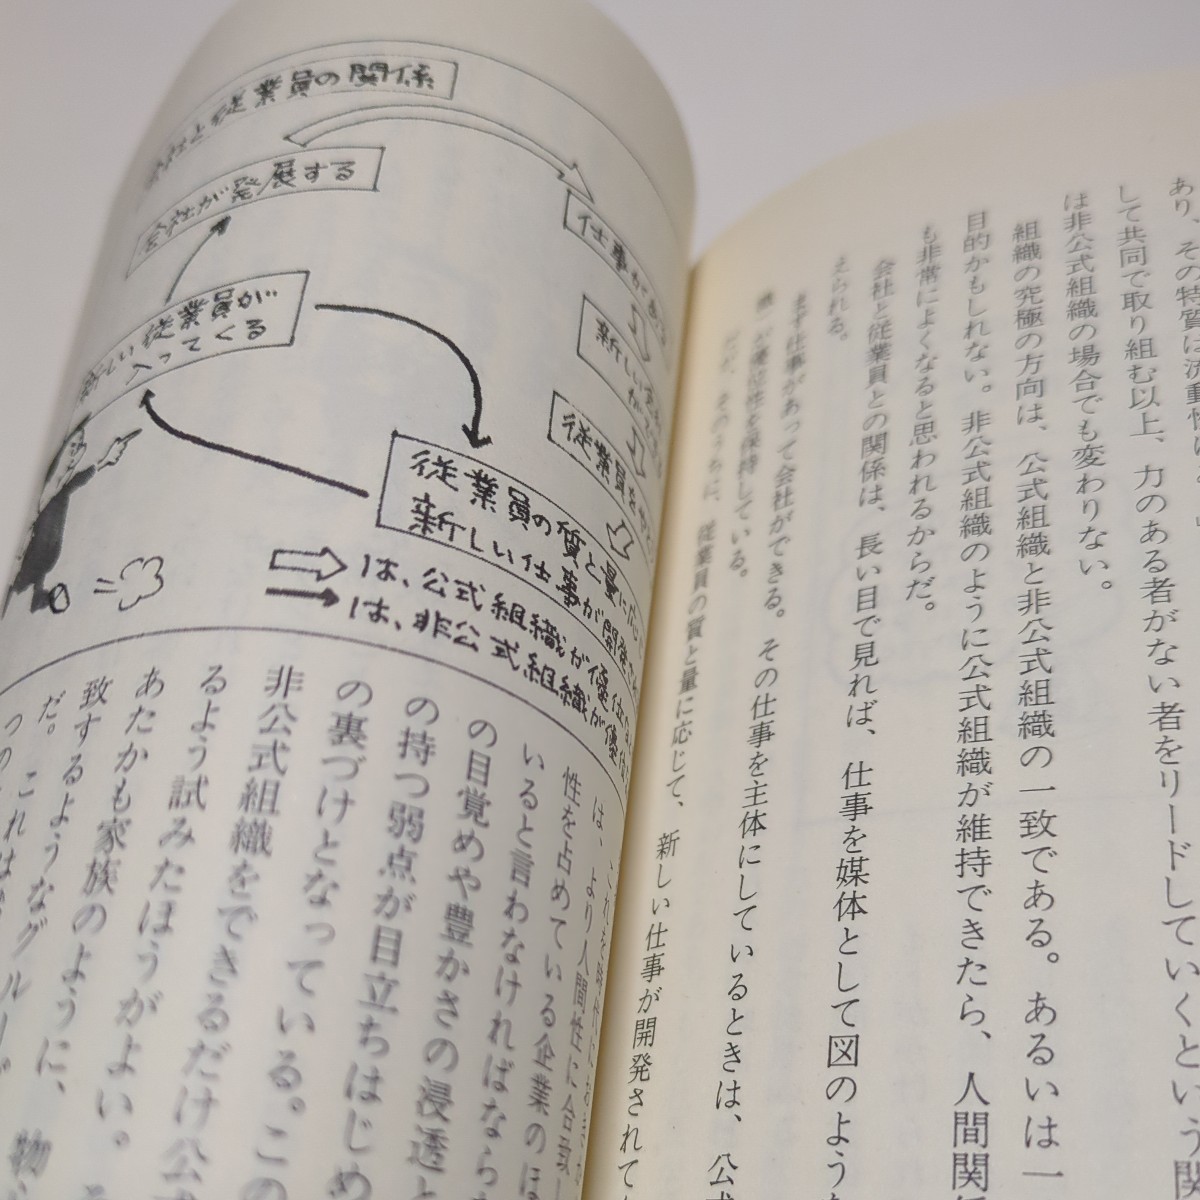 あり、その特質は流動性に
して共同で取り組む以上、力のある者がない者をリードしていくという関
は非公式組織の場合でも変わりない。
組織の究極の方向は、公式組織と非公式組織の一致である。あるいは一
目的かもしれない。非公式組織のように公式組織が維持できたら、人間関
も非常によくなると思われるからだ。
会社と従業員との関係は、長い目で見れば、仕事を媒体として図のような
えられる。
まず仕事があって会社ができる。その仕事を主体にしているときは、公
が優位性を保持している。
だが、そのうちに、従業員の質と量に応じて、新しい仕事が開発されて
会社と従業員の関係
会社が発展する
仕事がある
新しい
従業員を
新しい従業員が
入ってくる
従業員の質と量に応じ
新しい仕事が開発
は、公式組織が優位
は、非公式組織が優位
は、これを時代に
性を占めている企業のほ
いると言わなければなら
の目覚めや豊かさの浸透と
の持つ弱点が目立ちはじめ
の裏づけとなっている。この
非公式組織をできるだけ公
るよう試みたほうがよい。
あたかも家族のように、物
致するようなグループ
だ。これは